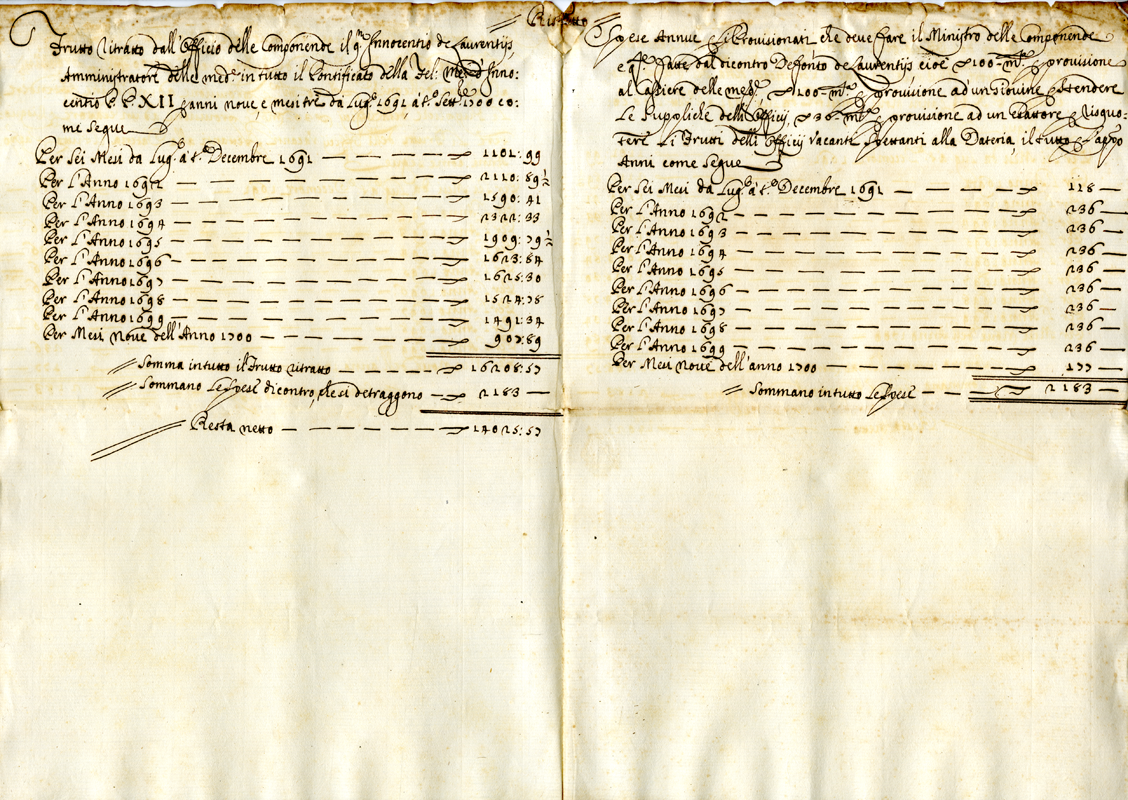 Ristretto
Frutto ritratto dall'Officio delle Componende il q.m Innocentio de Laurentijs,
Amministratore delle med.e in tutto il Pontificato della fel: Mem: d'Inno:
centio PP XII p anni nove, e mesi tre da Lug.o 1691, a t.o Sett.e 1700 co:
me segue
Per Sei Mesi da Lug.o a t.o Decembre 1691 — 1101:99
Per L'Anno 1692 — 2110:89½
Per L'Anno 1693 — 1590:41
Per L'Anno 1694 — 2322:33
Per L'Anno 1695 — 1909:79½
Per L'Anno 1696 — 1623:84
Per L'Anno 1697 — 1625:30
Per L'Anno 1698 — 1524:78
Per L'Anno 1699 — 1491:34
Per Mesi nove dell'Anno 1700 — 907:89
Somma in tutto il Frutto ritratto — 16208:57
Sommano Le Spese di contro, che si detraggono — 2183 —
Resta netto — 14025:57
Spese Annue p li Provisionati che deve fare il Ministro delle Componende
e q.li fatte dal di contro Defonto de Laurentijs cioè 100 m.ta p provisione
al Cassiere delle med.e, 100 m.ta p provisione ad un Giovine p stendere
Le Suppliche delli Officij, 36 m.ta p provisione ad un Esattore p risquo:
tere Li Frutti delli Officij Vacanti spettanti alla Dateria, il tutto
Anni come segue
Per Sei Mesi da Lug.o a t.o Decembre 1691 — 118 —
Per L'Anno 1692 — 236 —
Per L'Anno 1693 — 236 —
Per L'Anno 1694 — 236 —
Per L'Anno 1695 — 236 —
Per L'Anno 1696 — 236 —
Per L'Anno 1697 — 236 —
Per L'Anno 1698 — 236 —
Per L'Anno 1699 — 236 —
Per Mesi nove dell'anno 1700 — 177 —
Sommano in tutto Le Spese — 2183 —